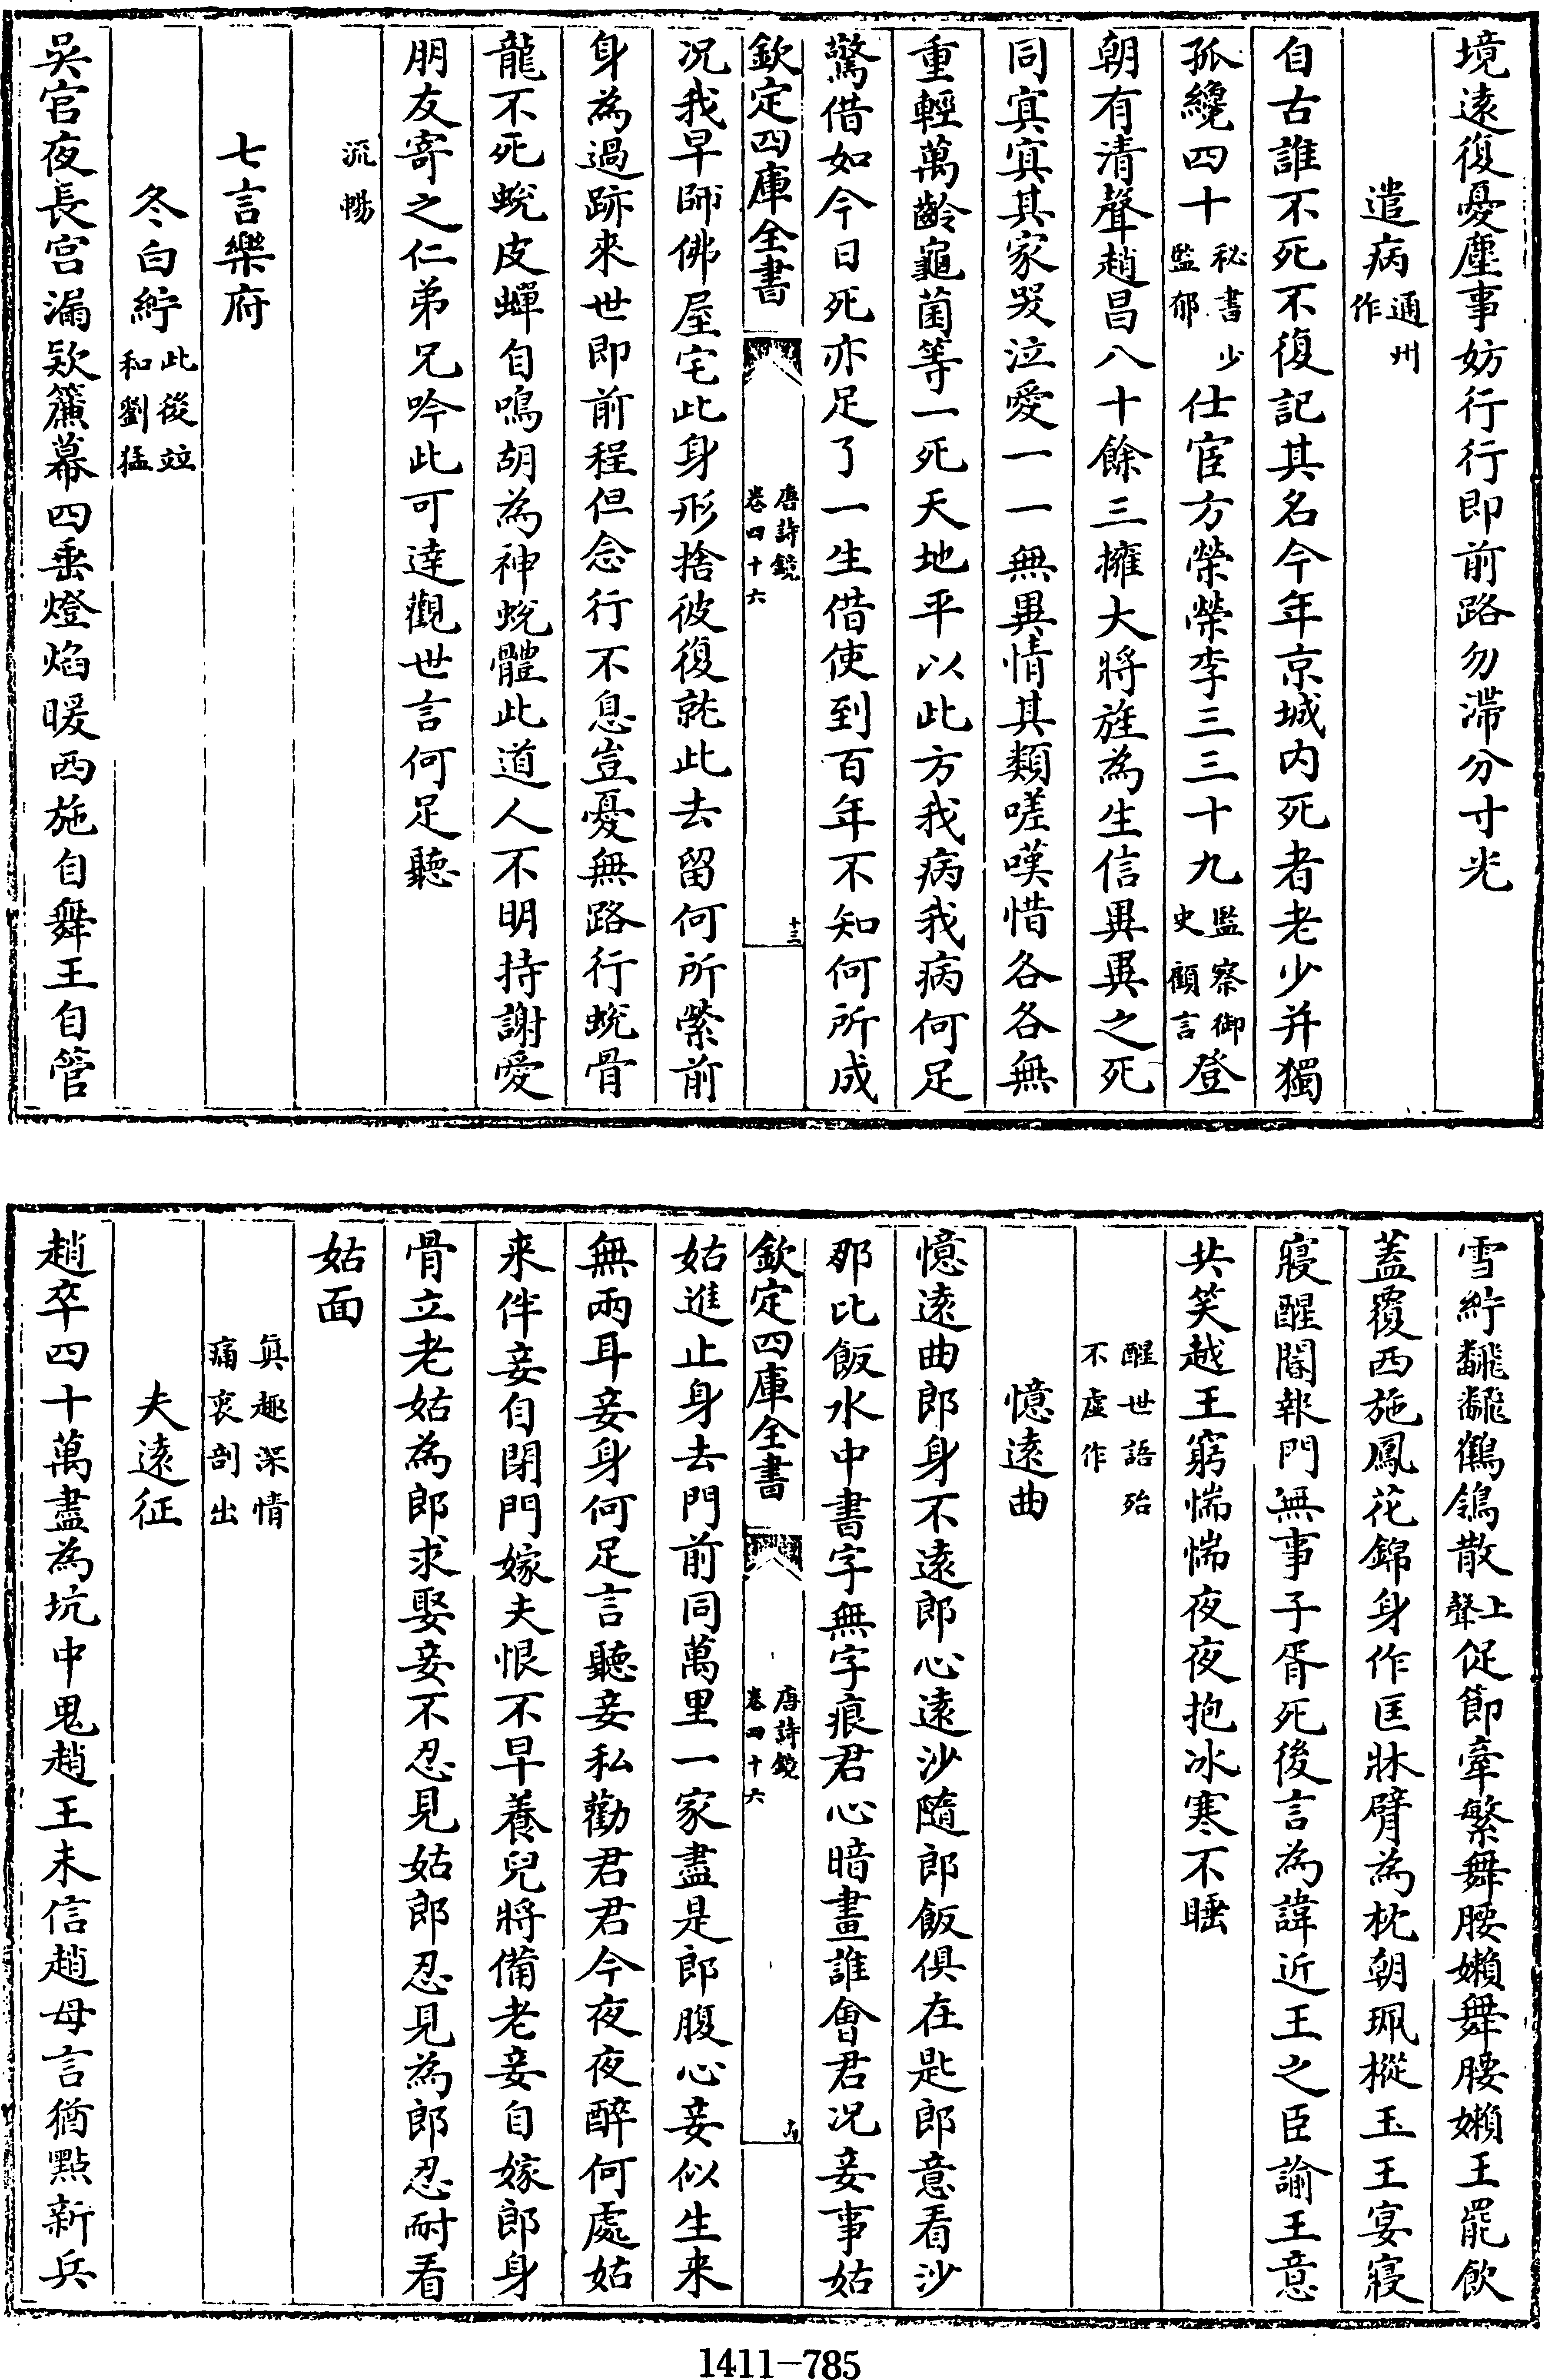 境遠復憂塵事妨行行即前路勿滯分寸光
遣病通州作
自古誰不死不復記其名今年京城内死者老少并獨
孤纔四十秘書少監郁仕宦方榮榮李三三十九監察御史顧言登
朝有清聲趙昌八十餘三擁大將旌為生信異異之死
同寘寘其家哭泣愛一一無異情其類嗟嘆惜各各無
重輕萬齡龜菌等一死天地平以此方我病我病何足
驚借如今日死亦足了一生借使到百年不知何所成
欽定四庫全書
唐詩鏡
卷四十六
十三
况我早師佛屋宅此身形捨彼復就此去留何所縈前
身為過跡來世即前程但念行不息豈憂無路行蛻骨
龍不死蛻皮蟬自鳴胡為神蛻體此道人不明持謝愛
朋友寄之仁弟兄吟此可達觀世言何足聽
流暢
七言樂府
冬白紵此後竝和劉猛
吳宫夜長宫漏欵簾幕四垂燈焰暖西施自舞王自管
雪紵翻翻鶴翎散上聲促節牽繁舞腰嬾舞腰嬾王罷飲
蓋覆西施鳳花錦身作匡牀臂為枕朝珮樅玉王宴寢
寢醒閽報門無事子胥死後言為諱近王之臣諭王意
共笑越王窮惴惴夜夜抱冰寒不睡
醒世語殆
不虛作
憶遠曲
憶遠曲郎身不遠郎心遠沙隨郎飯俱在匙郎意看沙
那比飯水中書字無字痕君心暗畫誰會君况妾事姑
欽定四庫全書
唐詩鏡
卷四十六
姑進止身去門前同萬里一家盡是郎腹心妾似生来
無兩耳妾身何足言聽妾私勸君君今夜夜醉何處姑
来伴妾自閉門嫁夫恨不早養兒將備老妾自嫁郎身
骨立老姑為郎求娶妾不忍見姑郎忍見為郎忍耐看
姑面
真趣深情
痛衷剖出
夫遠征
趙卒四十萬盡為坑中鬼趙王未信趙母言猶點新兵
1411-785